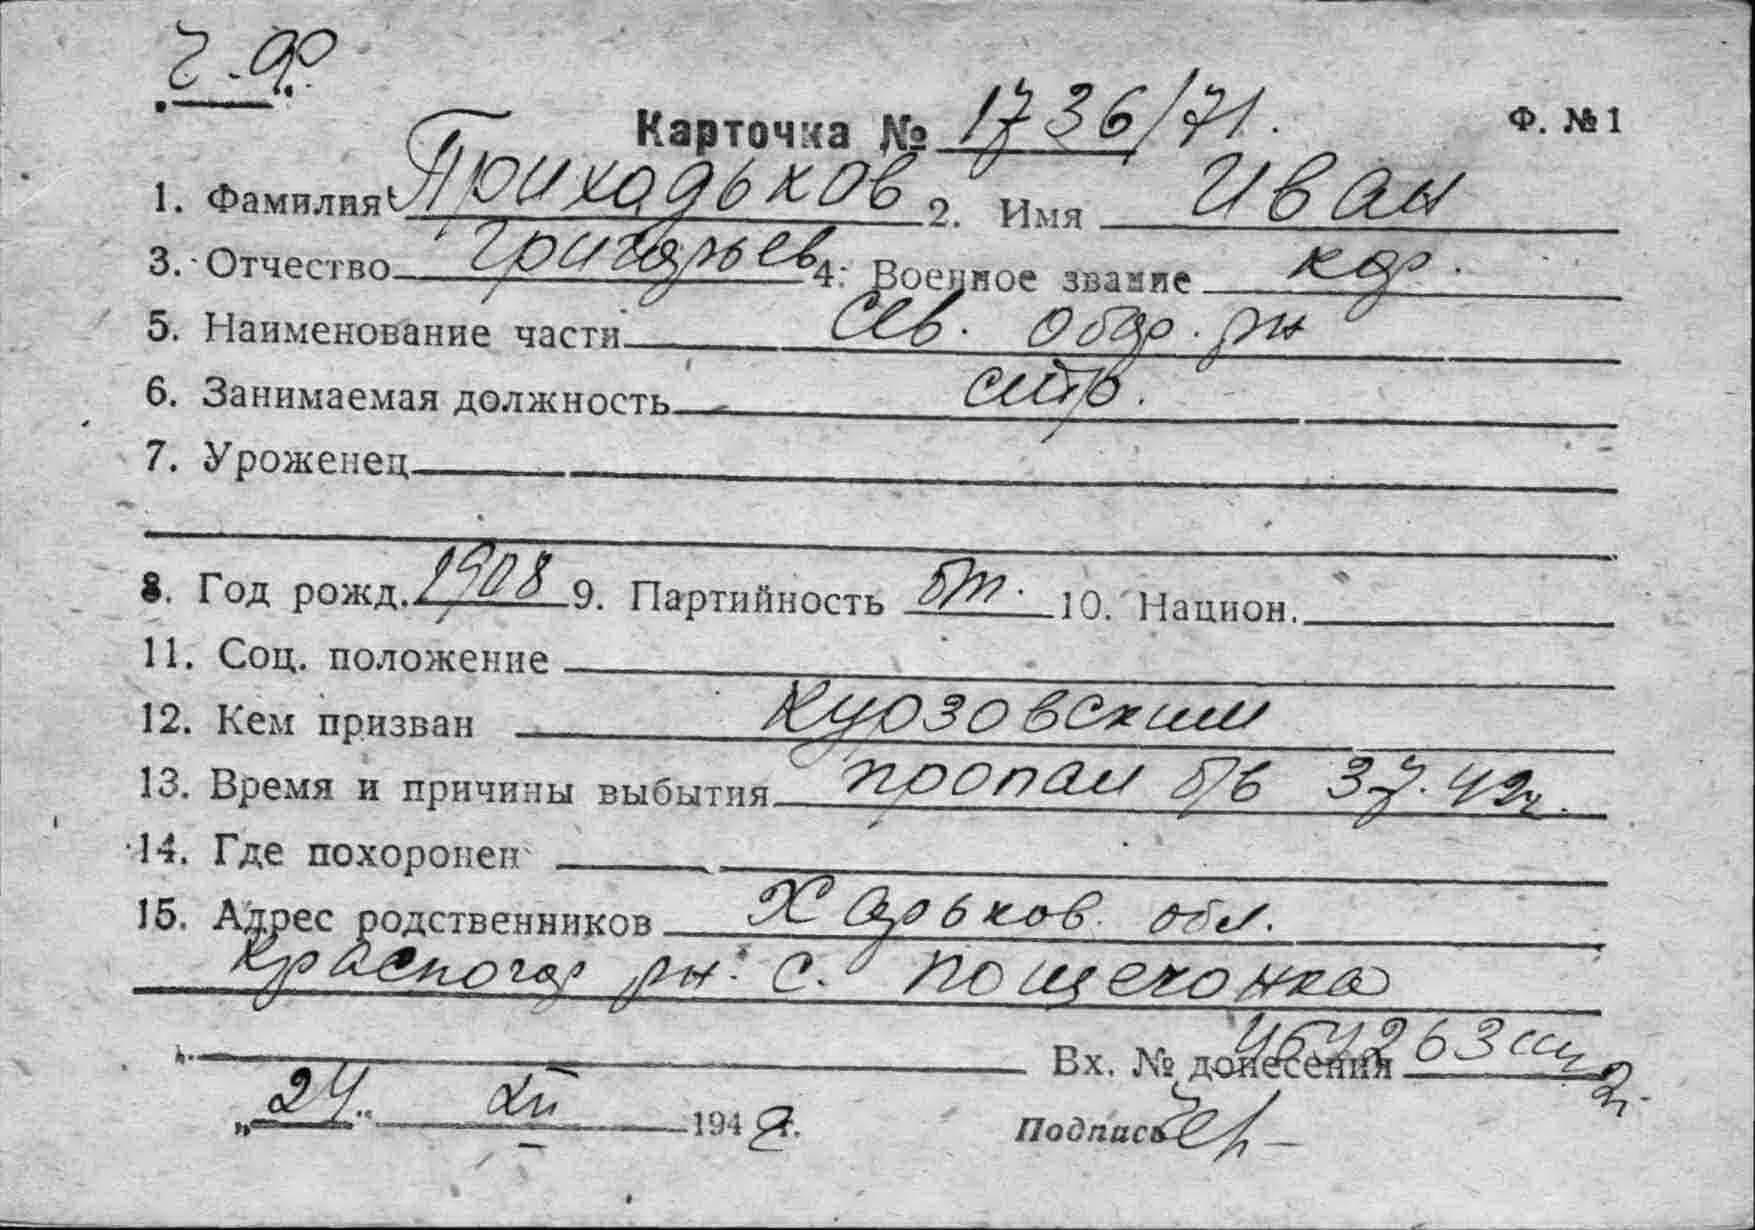 ч. ф.
Карточка № 1736/71. Ф. № 1
1. Фамилия Приходьков 2. Имя Иван
3. Отчество Григорьев 4. Военное звание кр.
5. Наименование части Сев. обор. рн
6. Занимаемая должность стр.
7. Уроженец
8. Год рожд. 1908 9. Партийность бп. 10. Национ.
11. Соц. положение
12. Кем призван Курзовским
13. Время и причины выбытия пропал б/в 3.7.42г.
14. Где похоронен
15. Адрес родственников Харьков. обл.
Красногор рн. с.
Вх. № донесения
„24“ XII 1942г. Подпись